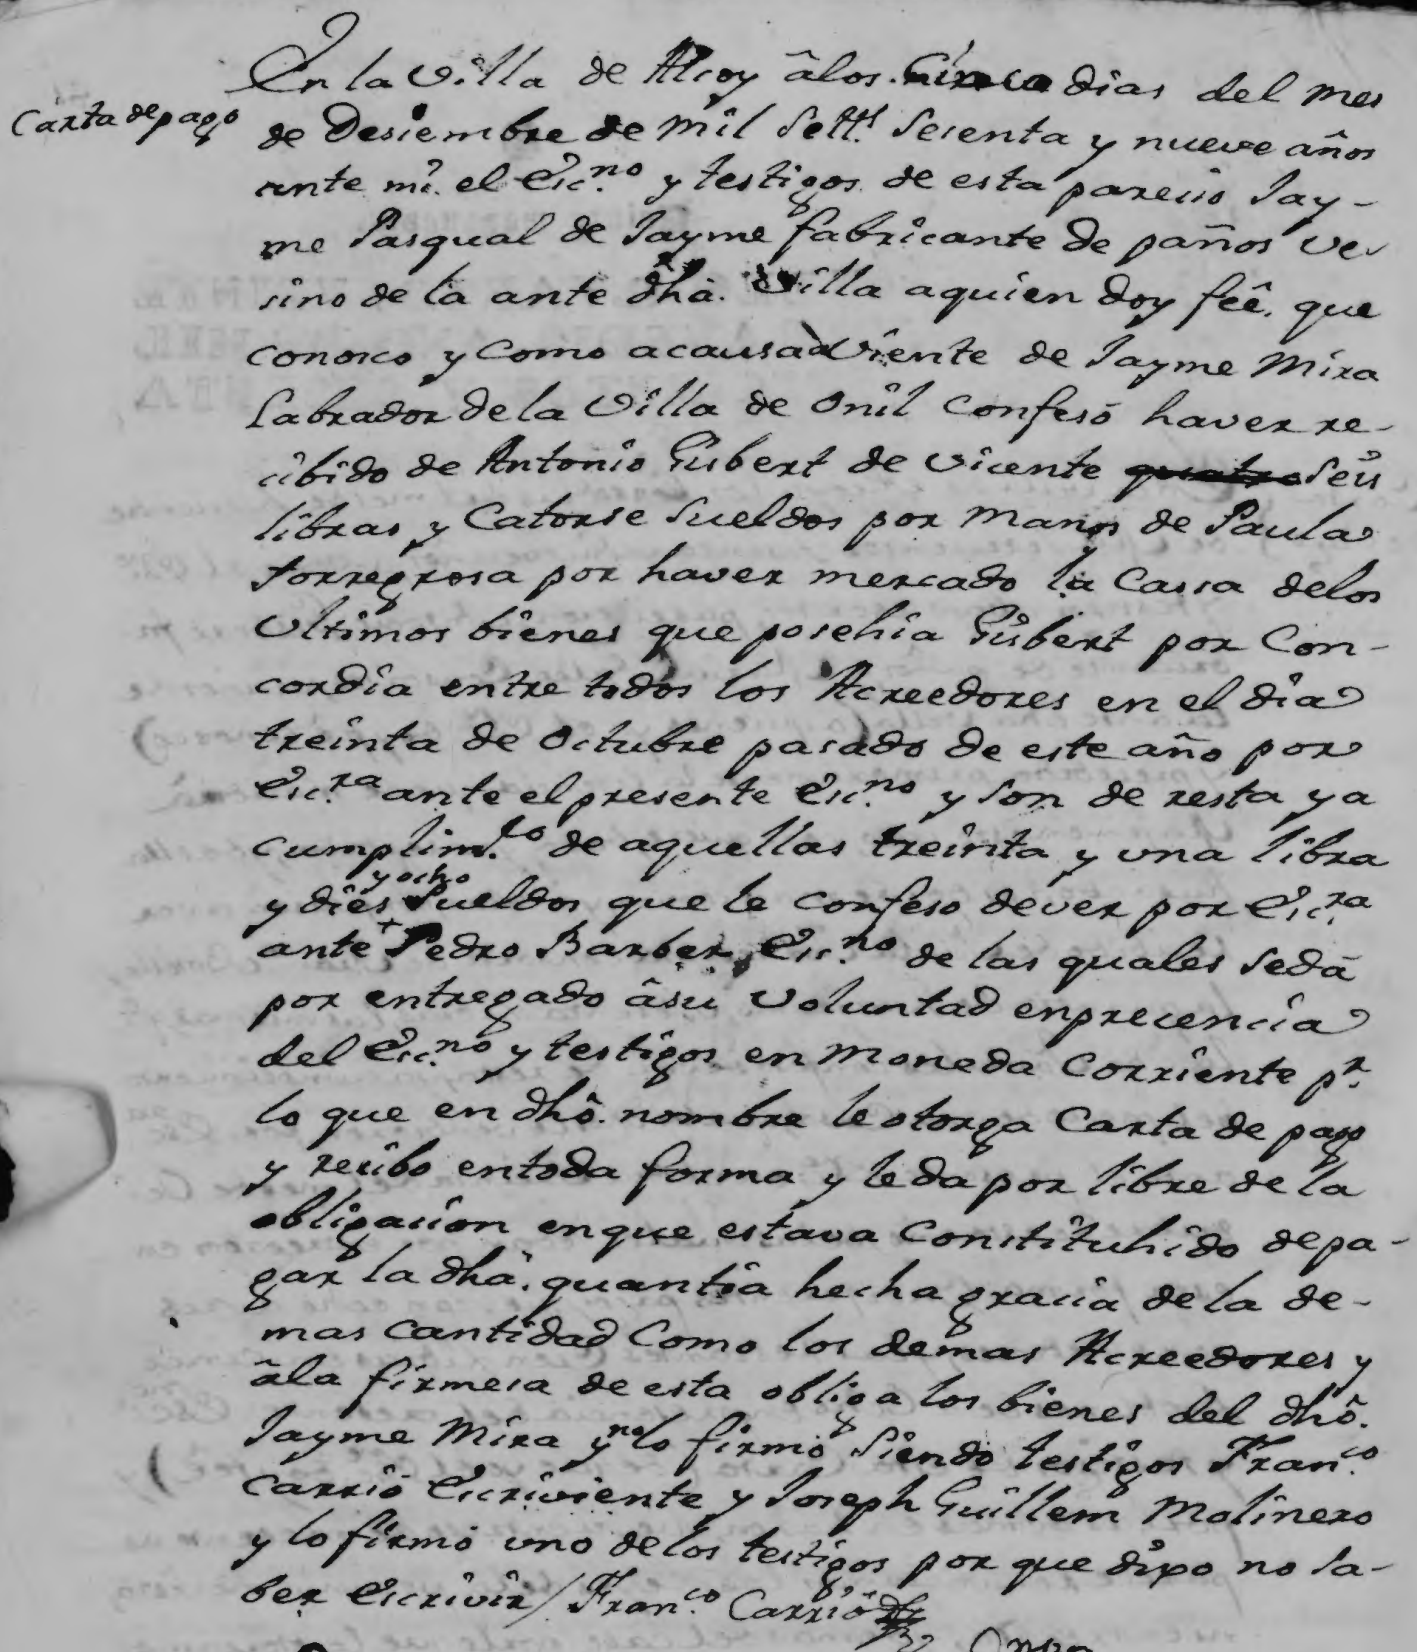 Carta de pago
En la Villa de Alcoy âlos Cinco dias del mes
de Desiembre de mil Sett.s Secenta y nueve años
ante mi el Esc.no y testigos de esta parecio Jay-
me Pasqual de Jayme fabricante de paños ve-
sino de la ante dha. Villa aquien doy feê. que
conosco y como acausa aviente de Jayme Mira
Labrador de la Villa de Onil Confesó haver re-
cibido de Antonio Gisbert de Vicente quatro Seis
libras y Catorse Sueldos por manos de Paula
Torregrosa por haver mercado la Cassa delos
Ultimos bienes que posehia Gisbert por Con-
cordia entre todos los Acreedores en el dia
treinta de Octubre pasado de este año por
Esc.ra ante el presente Esc.no y son de resta y a
cumplim.to de aquellas treinta y una libra
y dies y ocho Sueldos que le confeso dever por Esc.ra
ante + Pedro Barber Esc.no de las quales Sedá
por entregado âsu voluntad enprecencia
del Esc.no y testigos en moneda Corriente p.r
lo que en dhô. nombre le otorga Carta de pago
y recibo entoda forma y le da por libre de la
obligacion enque estava Constituhido depa-
gar la dhâ. quantia hecha gracia de la de-
mas Cantidad Como los demas Acreedores y
âla firmesa de esta obliga los bienes del dhô.
Jayme Mira y no lo firmó Siendo testigos Fran.co
Carrió Escriviente y Joseph Guillem Molinero
y lo firmó uno delos testigos por que dixo no Sa-
ber Escrivir / Fran.co Carrió